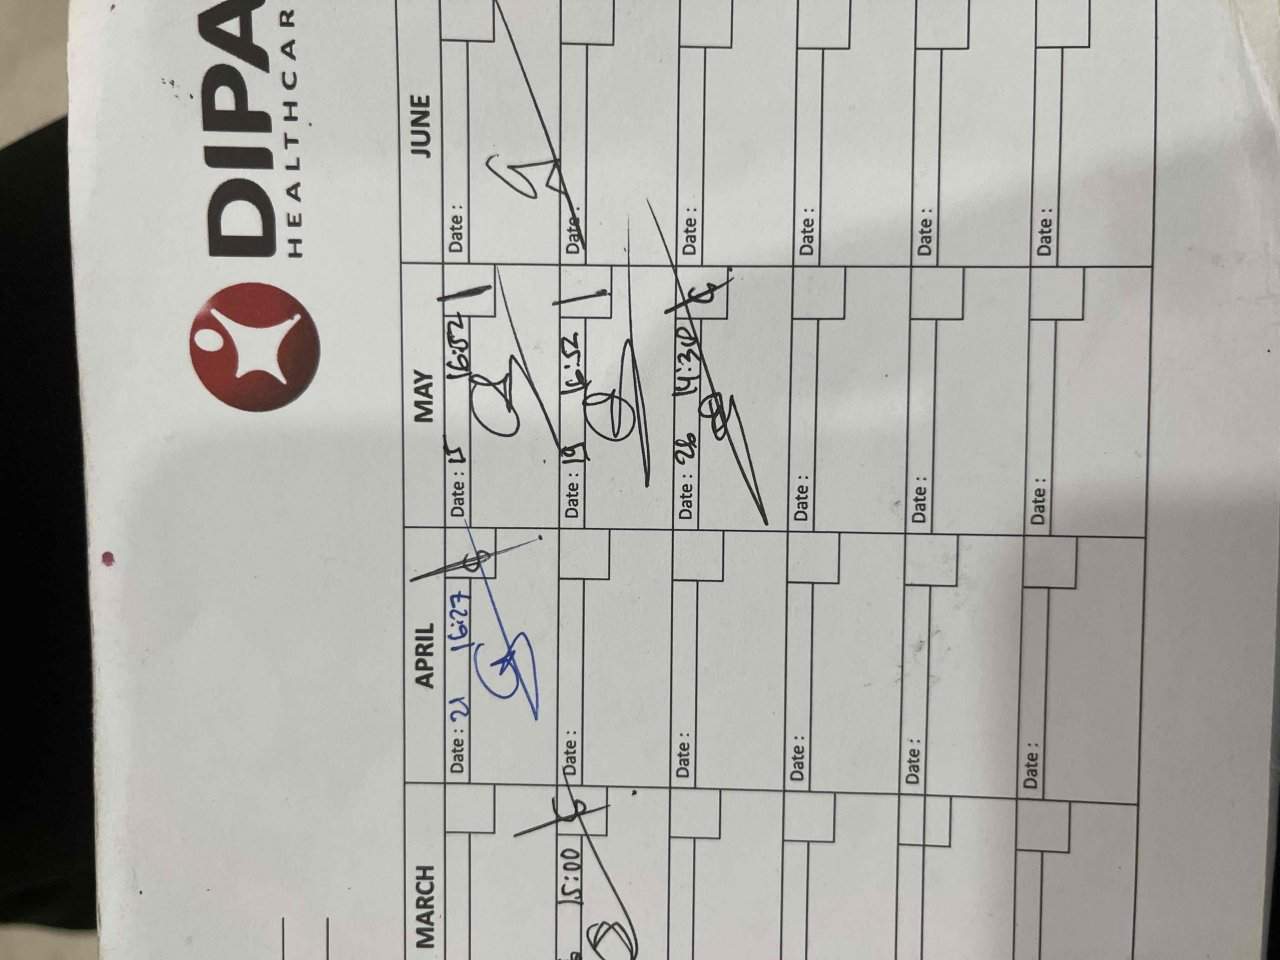 DIPA
HEALTHCAR
MARCH APRIL MAY JUNE
Date : 21 16:27 Date : 15 16:52 Date :
15:00 Date : Date : 19 16:52 Date :
Date : Date : 26 14:30 Date :
Date : Date : Date :
Date : Date : Date :
Date : Date : Date :